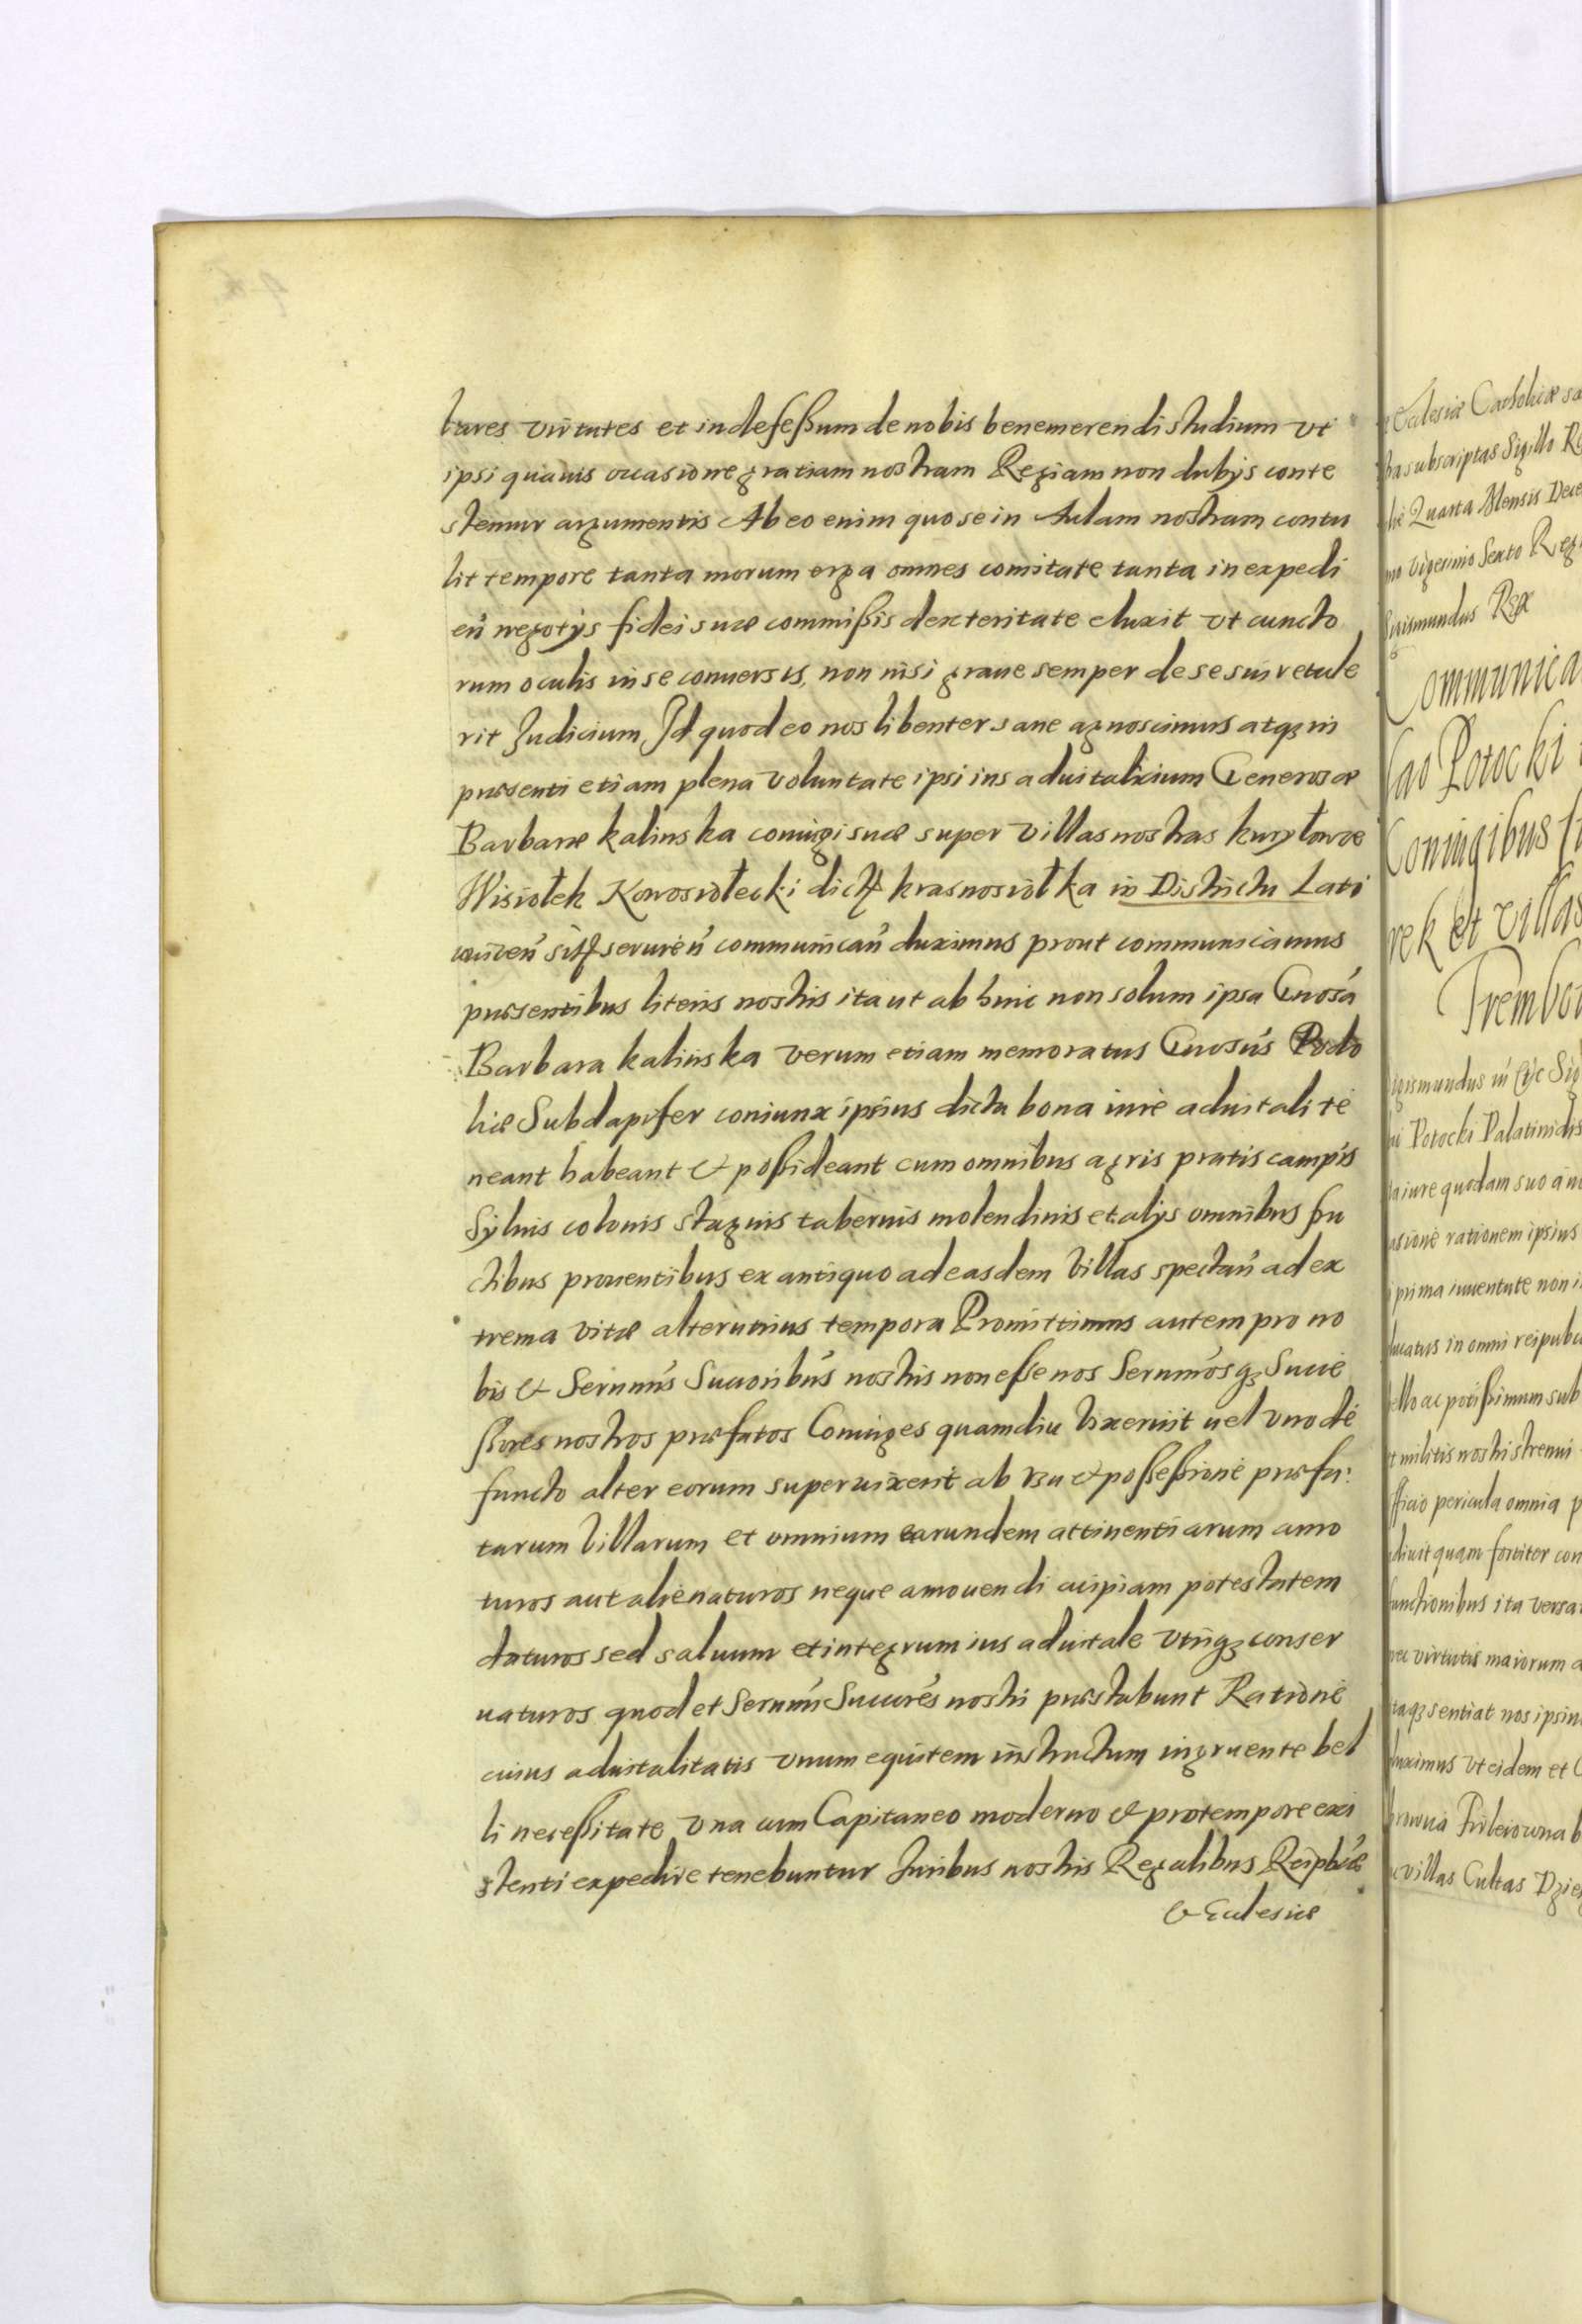 lares virtutes et indefeßum de nobis benemerendi studium vt
ipsi quauis occasione gratiam nostram Regiam non dubijs conte
stemur argumentis Ab eo enim quo se in Aulam nostram contu
lit tempore tanta morum erga omnes comitate tanta in expedi
eñ negotijs fidei suæ commißis dexteritate eluxit vt cuncto
rum oculis in se conuersis, non nisi graue semper de se sui retule
rit Judicium, Id quod eo nos libenter sane agnoscimus atqꝫ in
præsenti etiam plena voluntate ipsi ius aduitalitium Generosæ
Barbaræ kalinska coniugi suæ super villas nostras kuryłowce
Wisiołek Kowosiołecki dict krasnosiołka in Districtu Lati
communicañ duximus prout communicamus
præsentibus literis nostris ita ut ab hinc non solum ipsa Gnosa
Barbara kalinska verum etiam memoratus Gnosus Podo
liæ Subdapifer coniunx ipsius dicta bona iure aduitali te
neant habeant & poßideant cum omnibus agris pratis campis
Syluis colonis stagnis tabernis molendinis et alijs omnibus fru
ctibus prouentibus ex antiquo ad easdem Villas spectañ ad ex
trema vitæ alterutrius tempora Promittimus autem pro no
bis & Sernmis Succoribus nostris non esse nos Sernmosqꝫ Succe
ßores nostros præfatos Coniuges quamdiu vixerint uel vno de
functo alter eorum superuixerit ab vsu & poßeßione præfa:
tarum Villarum et omnium earundem attinentiarum amo
turos aut alienaturos neque amouendi cuipiam potestatem
daturos sed saluum et integrum ius aduitale vtriqꝫ conser
uaturos quod et Sernmi Succres nostri præstabunt Ratione
cuius aduitalitatis vnum equitem instructum ingruente bel
li neceßitate vna cum Capitaneo moderno & pro tempore exi
stenti expedire tenebuntur Juribus nostris Regalibus Reipbcæ
& Eclesiæ
Eclesiæ Catholicæ sa
subscriptas Sigillo Re
Quarta Mensis Dece
vigesimo Sexto Regn
Sigismundus Rex
Communica
Potocki
Coniugibus
et villas
Trembow
Potocki Palatinidis
iure quodam suo
rationem ipsius
prima iuuentute non i
in omni reipubc
ac potißimum sub
militis nostri strenui
pericula omnia p
quam fortiter con
functionibus ita versa
virtutis maiorum a
sentiat nos ipsiu
duximus vt eidem et
villas Cultas